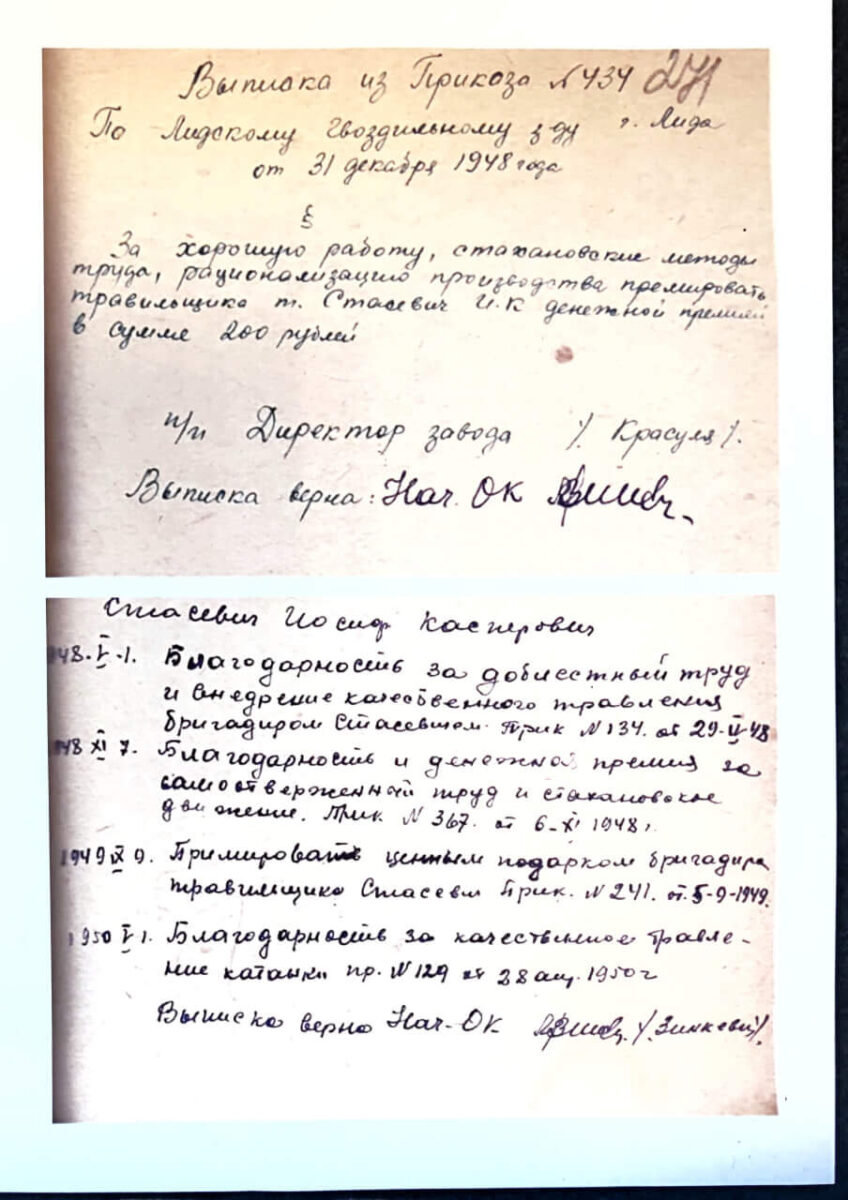 Выписка из Приказа N 434 271
По Лидскому Гвоздильному з-ду г. Лида
от 31 декабря 1948 года
§
За хорошую работу, стахановские методы
труда, рационализацию производства премировать
травильщика т. Стасевич И.К денежной премией
в сумме 200 рублей
п/п Директор завода /. Красуля /.
Выписка верна: Нач. ОК
Стасевич Иосиф Касперович
948.V.1. Благодарность за доблестный труд
и внедрение качественного травления
бригадиром Стасевичем. Прик N 134. от 29-IV-48
948 XI 7. Благодарность и денежной премия за
самоотверженный труд и стахановское
движение. Прик N 367. от 6-XI 1948 г.
1949 IX 9. Примировать ценным подарком бригадира
травильщика Стасевич Прик. N 241. от. 5-9-1949.
1950 V 1. Благодарность за качественное травле-
ние катанки пр. N 129 от 28 апр. 1950 г
Выписка верно Нач-ОК /. Зинкевич /.